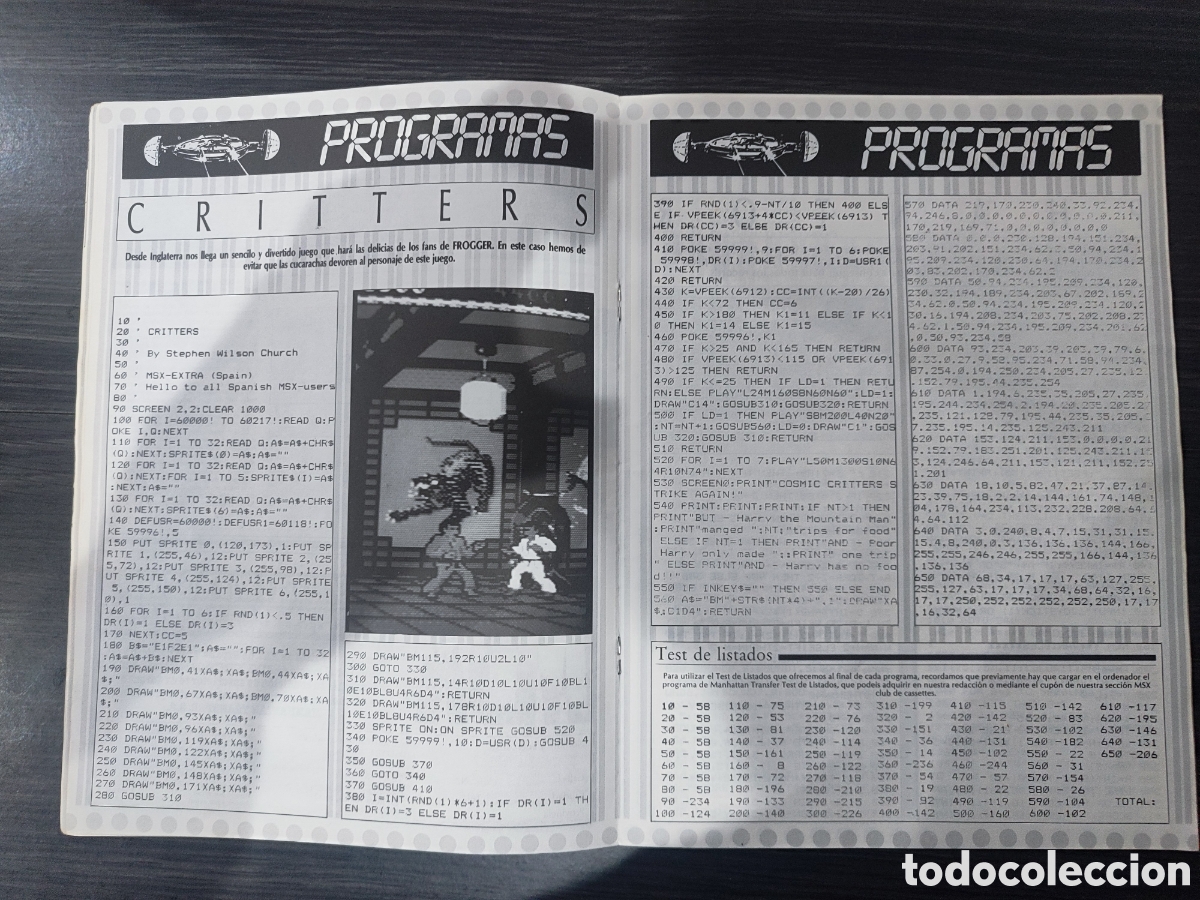 PROGRAMAS
CRITTERS
Desde Inglaterra nos llega un sencilo y divertido juego que hará las delicias de los fans de FROGGER. En este caso hemos de
evitar que las cucarachas devoren al personaje de este juego.
10 '
20 ' CRITTERS
30 '
40 ' By Stephen Wilson Church
50 '
60 ' MSX-EXTRA (Spain)
70 ' Hello to all Spanish MSX-users
80 '
90 SCREEN 2,2:CLEAR 1000
100 FOR I=60000! TO 60217!:READ Q:P
OKE I,Q:NEXT
110 FOR I=1 TO 32:READ Q:A$=A$+CHR$
(Q):NEXT:SPRITE$(0)=A$:A$=""
120 FOR I=1 TO 32:READ Q:A$=A$+CHR$
(Q):NEXT:FOR I=1 TO 5:SPRITE$(I)=A$
:NEXT:A$=""
130 FOR I=1 TO 32:READ Q:A$=A$+CHR$
(Q):NEXT:SPRITE$(6)=A$:A$=""
140 DEFUSR=60000!:DEFUSR1=60118!:PO
KE 59996!,5
150 PUT SPRITE 0,(120,173),1:PUT SP
RITE 1,(255,46),12:PUT SPRITE 2,(25
5,72),12:PUT SPRITE 3,(255,98),12:P
UT SPRITE 4,(255,124),12:PUT SPRITE
5,(255,150),12:PUT SPRITE 6,(255,10
),1
160 FOR I=1 TO 6:IF RND(1)<.5 THEN
DR(I)=1 ELSE DR(I)=3
170 NEXT:CC=5
180 B$="E1F2E1":A$="":FOR I=1 TO 32
:A$=A$+B$:NEXT
190 DRAW"BM0,41XA$;XA$;BM0,44XA$;XA
$;"
200 DRAW"BM0,67XA$;XA$;BM0,70XA$;XA
$;"
210 DRAW"BM0,93XA$;XA$;"
220 DRAW"BM0,96XA$;XA$;"
230 DRAW"BM0,119XA$;XA$;"
240 DRAW"BM0,122XA$;XA$;"
250 DRAW"BM0,145XA$;XA$;"
260 DRAW"BM0,148XA$;XA$;"
270 DRAW"BM0,171XA$;XA$;"
280 GOSUB 310
290 DRAW"BM115,192R10U2L10"
300 GOTO 330
310 DRAW"BM115,14R10D10L10U10F10BL1
0E10BL8U4R6D4":RETURN
320 DRAW"BM115,178R10D10L10U10F10BL
10E10BL8U4R6D4":RETURN
330 SPRITE ON:ON SPRITE GOSUB 520
340 POKE 59999!,10:D=USR(D):GOSUB 4
30
350 GOSUB 370
360 GOTO 340
370 GOSUB 410
380 I=INT(RND(1)*6+1):IF DR(I)=1 TH
EN DR(I)=3 ELSE DR(I)=1
PROGRAMAS
390 IF RND(1)<.9-NT/10 THEN 400 ELS
E IF VPEEK(6913+4*CC)<VPEEK(6913) T
HEN DR(CC)=3 ELSE DR(CC)=1
400 RETURN
410 POKE 59999!,9:FOR I=1 TO 6:POKE
59998!,DR(I):POKE 59997!,I:D=USR1(
D):NEXT
420 RETURN
430 K=VPEEK(6912):CC=INT((K-20)/26)
440 IF K<72 THEN CC=6
450 IF K>180 THEN K1=11 ELSE IF K<1
0 THEN K1=14 ELSE K1=15
460 POKE 59996!,K1
470 IF K>25 AND K<165 THEN RETURN
480 IF VPEEK(6913)<115 OR VPEEK(691
3)>125 THEN RETURN
490 IF K<=25 THEN IF LD=1 THEN RETU
RN:ELSE PLAY"L24M160S8N60N60":LD=1:
DRAW"C14":GOSUB310:GOSUB320:RETURN
500 IF LD=1 THEN PLAY"S8M200L40N20"
:NT=NT+1:GOSUB560:LD=0:DRAW"C1":GOS
UB 320:GOSUB 310:RETURN
510 RETURN
520 FOR I=1 TO 7:PLAY"L50M1300S10N6
4R10N74":NEXT
530 SCREEN0:PRINT"COSMIC CRITTERS S
TRIKE AGAIN!"
540 PRINT:PRINT:PRINT:IF NT>1 THEN
PRINT"BUT - Harry the Mountain Man"
:PRINT"manged ";NT;"trips for food"
ELSE IF NT=1 THEN PRINT"AND - Poor
Harry only made ";:PRINT" one trip
" ELSE PRINT"AND - Harry has no foo
d!!"
550 IF INKEY$="" THEN 550 ELSE END
560 A$="BM"+STR$(NT*4)+",1":DRAW"XA
$;C1D4":RETURN
570 DATA 219,170,230,240,33,92,234,
94,246,8,0,0,0,0,0,0,0,0,0,211,
170,219,169,71,0,0,0,0,0,0,0
580 DATA 0,0,0,230,128,194,151,234,
600 DATA 93,234,203,39,203,39,79,6,
610 DATA 1,194,6,235,35,205,27,235,
620 DATA 153,124,211,153,0,0,0,0,21
630 DATA 18,10,5,82,47,21,37,87,16,
23,39,75,18,2,2,14,144,161,74,148,
04,178,164,234,113,232,228,208,64,
4,64,112
640 DATA 3,0,240,8,4,7,15,31,31,15,
15,4,8,240,0,3,136,136,136,144,160,
255,255,246,246,255,255,166,144,136
,136,136
650 DATA 68,34,17,17,17,63,127,255,
255,127,63,17,17,17,34,68,64,32,16,
17,17,250,252,252,252,252,250,17,17
,16,32,64
Test de listados
Para utilizar el Test de Listados que ofrecemos al final de cada programa, recordamos que previamente hay que cargar en el ordenador el
programa de Manhattan Transfer Test de Listados, que podeis adquirir en nuestra redacción o mediante el cupón de nuestra sección MSX
club de cassettes.
10 - 58 110 - 75 210 - 73 310 -199 410 -115 510 -142 610 -117
20 - 58 120 - 53 220 - 76 320 - 2 420 -142 520 - 83 620 -195
30 - 58 130 - 81 230 -120 330 -151 430 - 21 530 -102 630 -146
40 - 58 140 - 37 240 -114 340 - 36 440 -131 540 -182 640 -131
50 - 58 150 -161 250 -119 350 - 14 450 -102 550 - 22 650 -206
60 - 58 160 - 8 260 -122 360 -236 460 -244 560 - 31
70 - 58 170 - 72 270 -118 370 - 54 470 - 57 570 -154
80 - 58 180 -196 280 -210 380 - 19 480 - 22 580 - 26
90 -234 190 -133 290 -215 390 - 92 490 -119 590 -104 TOTAL:
100 -124 200 -140 300 -226 400 -142 500 -160 600 -102
todocoleccion